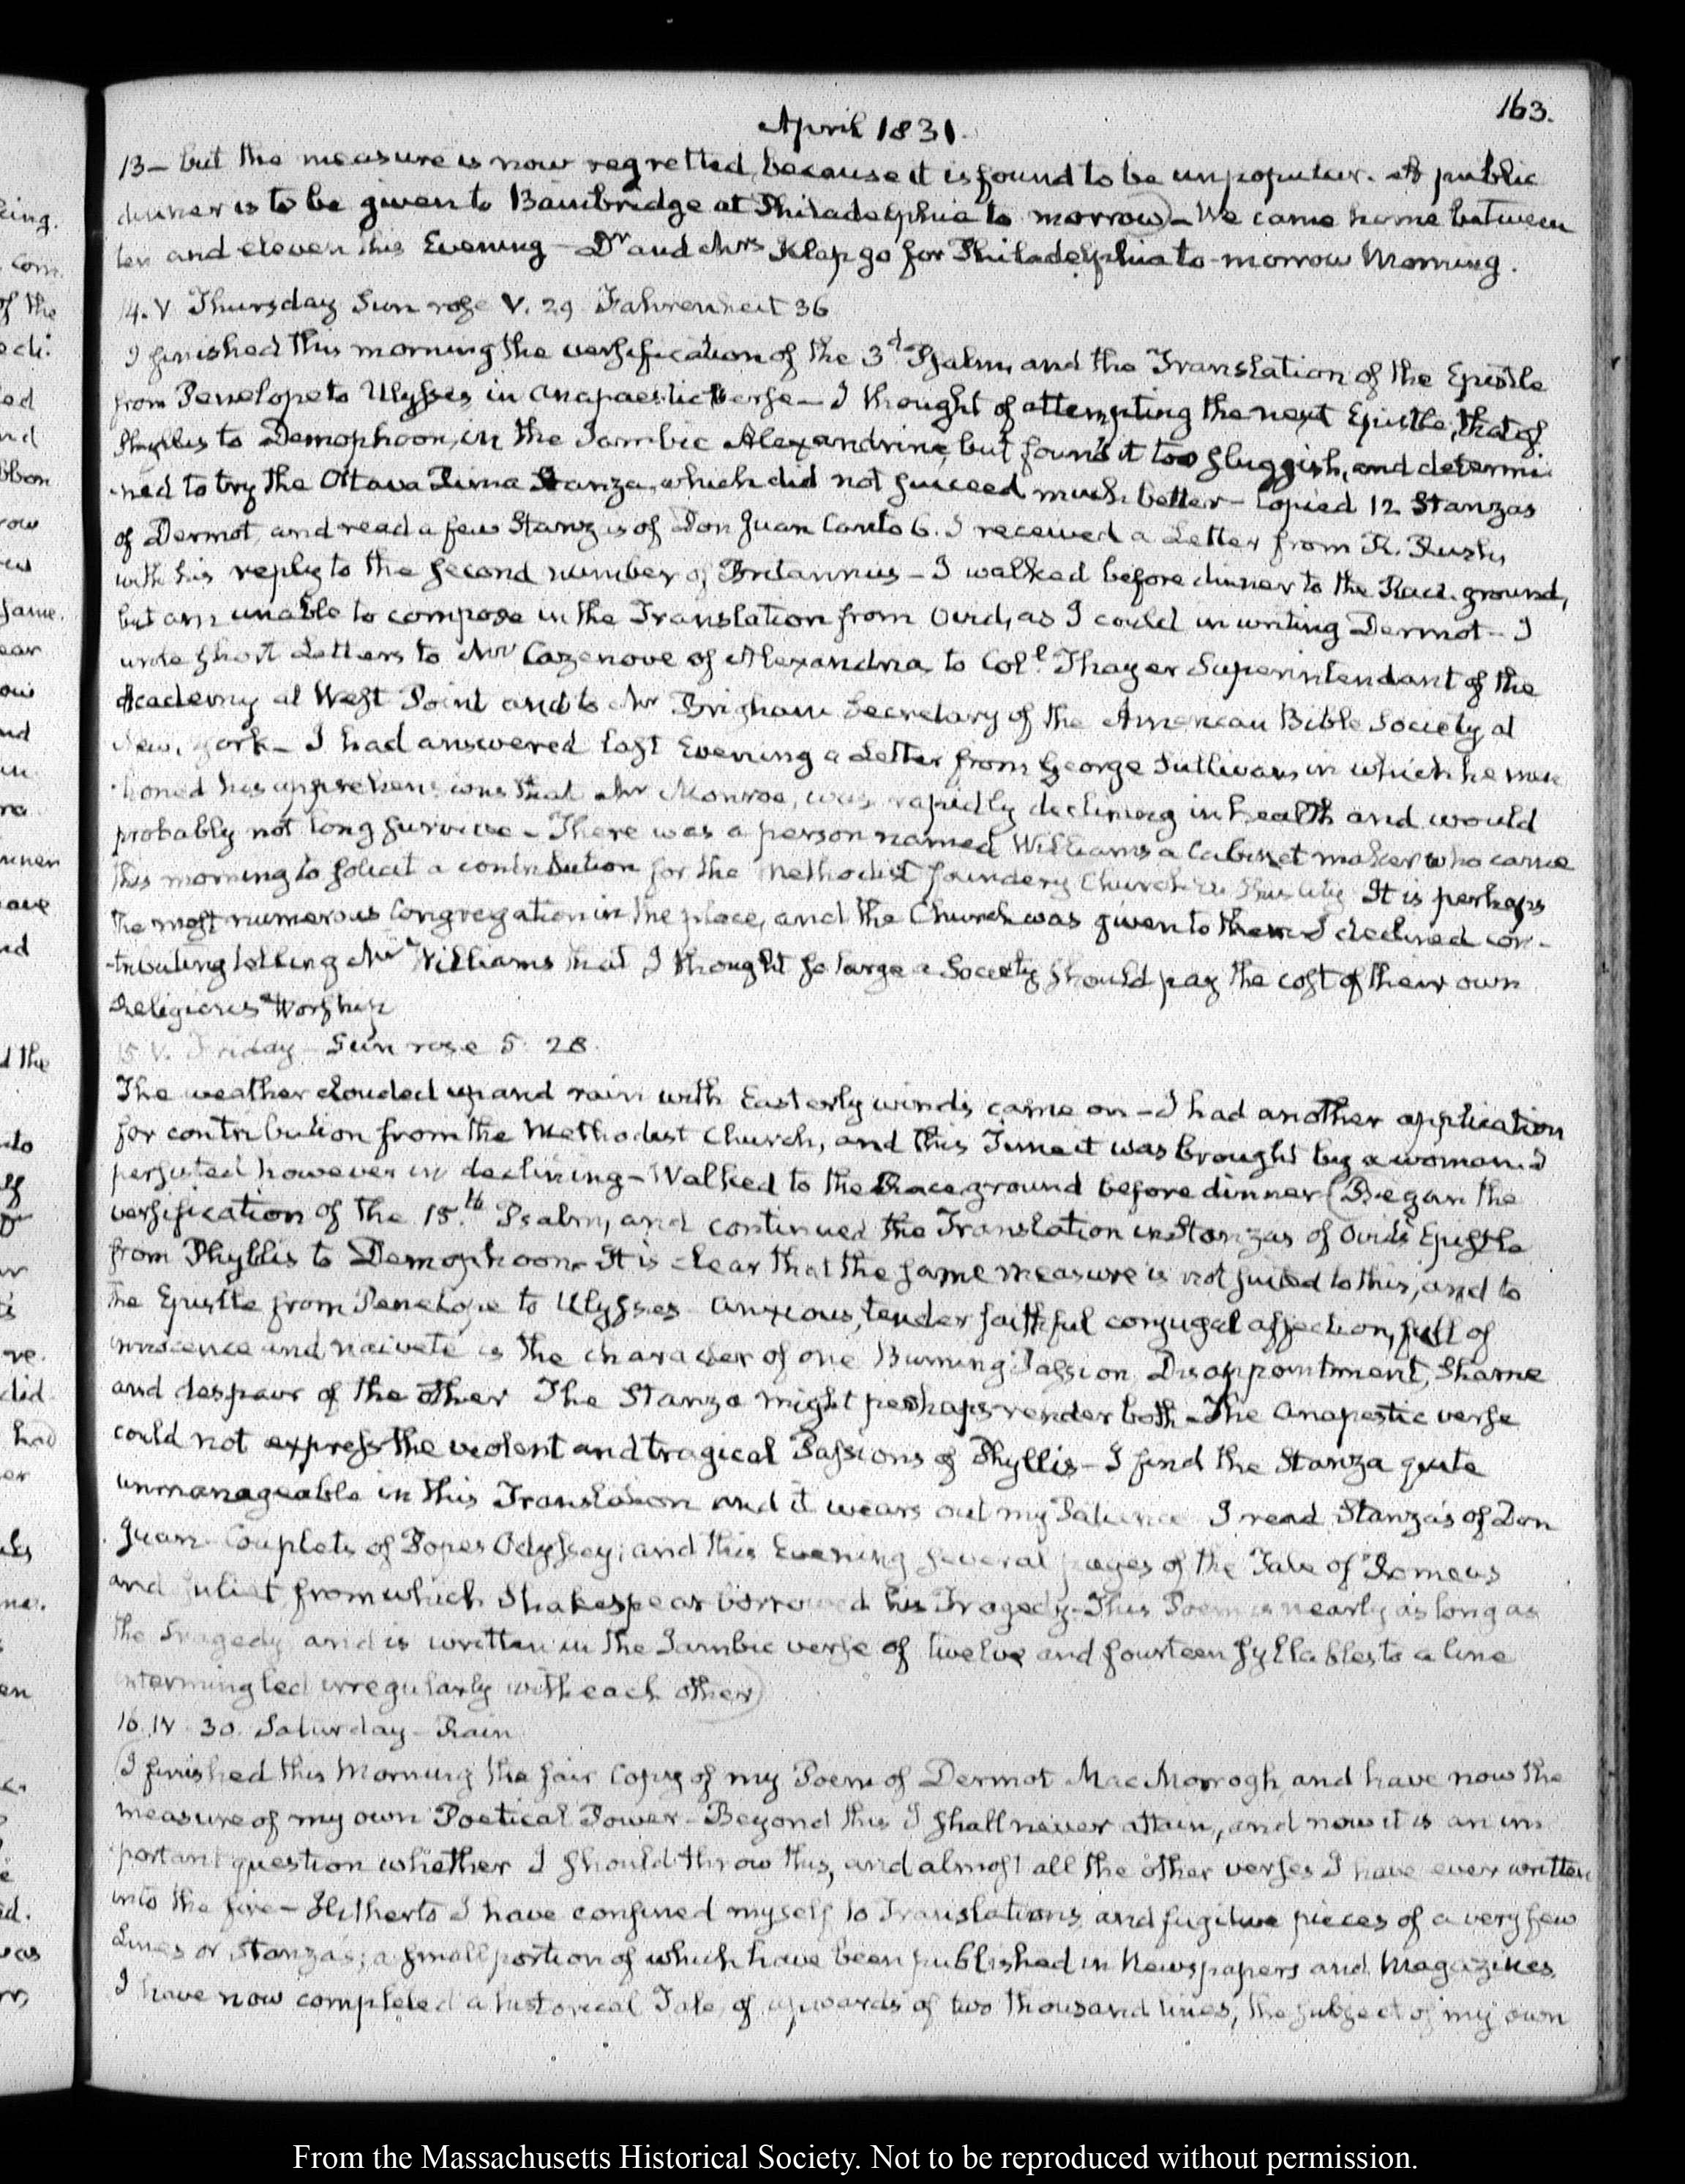 163.
April 1831.
13 - but the measure is now regretted, because it is found to be unpopular. A public
dinner is to be given to Bainbridge at Philadelphia to morrow) - We came home between
ten and eleven this Evening - Dr and Mrs Klap go for Philadelphia to-morrow Morning.
14. V Thursday Sun rose V. 29 Fahrenheit 36
I finished this morning the versification of the 3d Psalm, and the Translation of the Epistle
from Penelope to Ulysses in anapaestic verse - I thought of attempting the next Epistle, that of
Phyllis to Demophoon, in the Iambic Alexandrine, but found it too sluggish, and determi
-ned to try the Ottava Rima Stanza, which did not succeed much better - Copied 12 Stanzas
of Dermot, and read a few Stanzas of Don Juan Canto 6. I received a Letter from R. Rush,
with his reply to the second number of Britannus - I walked before dinner to the Race ground,
but am unable to compose in the Translation from Ovid, as I could in writing Dermot - I
wrote short Letters to Mr Cazenove of Alexandria, to Coll Thayer Superintendant of the
Academy at West Point and to Mr Brigham Secretary of the American Bible Society at
New, York - I had answered last Evening a Letter from George Sullivan, in which he men
-tioned his apprehensions that Mr Monroe, was rapidly declining in health and would
probably not long survive - There was a person named Williams a Cabinet maker who came
this morning to solicit a contribution for the Methodist foundery Church in this City It is perhaps
the most numerous Congregation in the place, and the Church was given to them I declined con-
-tributing telling Mr Williams that I thought so large a Society should pay the cost of their own
Religious Worship
15 V. Friday - Sun rose 5. 28.
The weather clouded up and rain with Easterly winds, came on - I had another application
for contribution from the Methodist Church, and this Time it was brought by a woman. I
persisted however in declining - Walked to the Race ground before dinner (Began the
versification of the 15.th Psalm, and continued the Translation in Stanzas of Ovid's Epistle
from Phyllis to Demophoon. It is clear that the same measure is not suited to this, and to
the Epistle from Penelope to Ulysses - Anxious, tender faithful conjugal affection, full of
innocence and naiveté is the character of one Burning Passion Disappointment, Shame
and despair of the other The Stanza might perhaps render both - The anapestic verse
could not express the violent and tragical Passions of Phyllis - I find the Stanza quite
unmanageable in this Translation and it wears out my Patience I read Stanza's of Don
Juan - Couplets of Popes Odyssey; and this Evening several pages of the Tale of Romeus
and Juliet from which Shakespear borrowed his Tragedy - This Poem is nearly as long as
the Tragedy and is written in the Iambic verse of twelve and fourteen syllables to a line
intermingled irregularly with each other)
16. IV. 30. Saturday - Rain
(I finished this Morning the fair Copy of my Poem of Dermot Mac Morrogh, and have now the
measure of my own Poetical Power - Beyond this I shall never attain, and now it is an im
-portant question whether I should throw this, and almost all the other verses I have ever written
into the fire - Hitherto I have confined myself to Translations, and fugitive pieces of a very few
Lines or Stanza's; a small portion of which have been published in Newspapers and Magazines
I have now completed a historical Tale, of upwards of two thousand lines, the subject of my own
From the Massachusetts Historical Society. Not to be reproduced without permission.